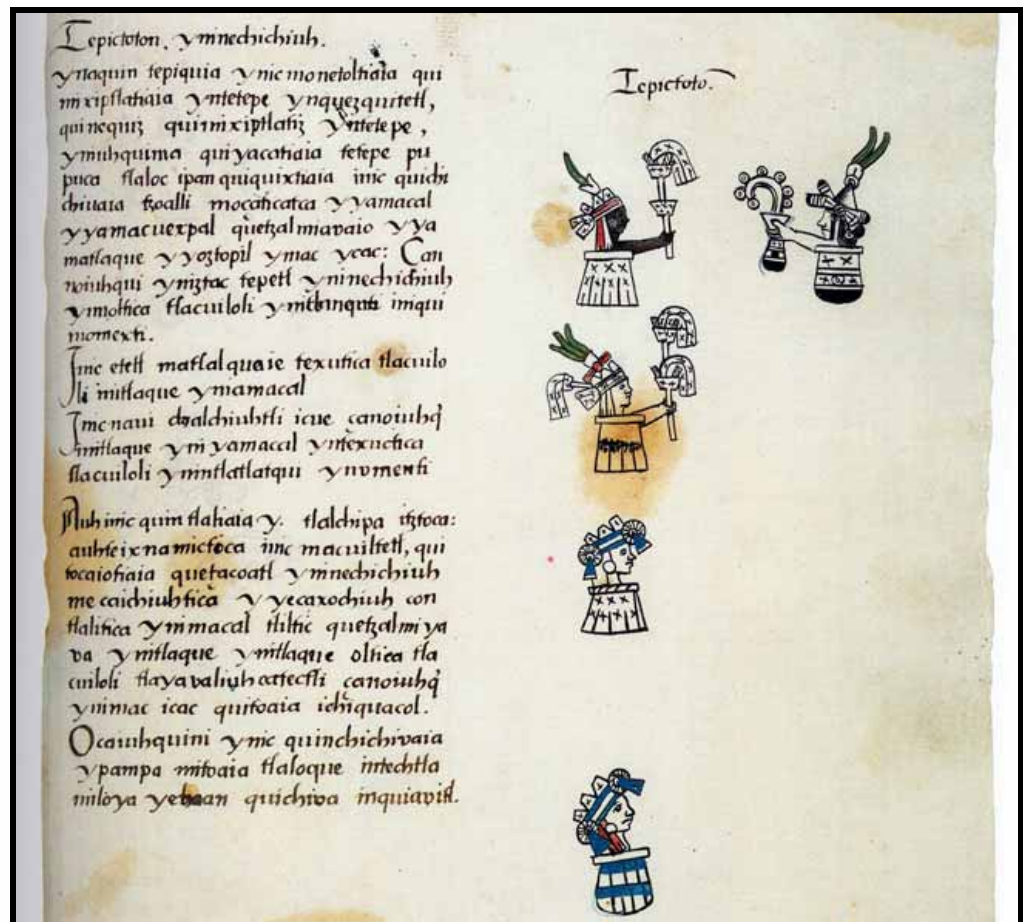 Tepictoton. ynnechichiuh.
ynaquin tepiquia ynic monetoltiaia qui
mixiptlatiaia yntetepe ynquezquitetl,
quinequiz quimixiptlatiz yntetepe,
ymuhquima quiyacatiaia tetepe pu
puca tlaloc ipan quiquixtiaia inic quichi
chiuaia tzoalli mocaticatca yyamacal
yyamacuexpal quetzalmiavaio yya
matlaque yyoztopil ymac ycac: Çan
noiuhqui yniztac tepetl ynnechichiuh
ymoltica tlacuiloli iniqui
momexti.
Inic etetl matlalquaie texutica tlacuilo
li initlaque yniamacal
Inic naui chalchiuhtli icue canoiuhq̃
initlaque yn yamacal yntexuctica
tlacuiloli ynintlatlatqui ynomenti
Auh inic quimtlaliaia y. tlalchipa itztoca:
auhteixnamictoca inic macuiltetl, qui
tocaiotiaia quetzacoatl ynnechichiuh
mecaichiuhtica yyecaxochiuh con
tlalitica ynimacal tliltic quetzalmiya
va ynitlaque ynitlaque oltica tla
cuiloli tlayavaliuhcatlectli canoiuhq̃
ynimac icac quitoaia ichiquacol.
Ocaiuhquini ynic quinchichivaia
ypampa mitoaia tlaloque intechtla
miloya yehoan quichiva inquiavitl.
Tepictoto.